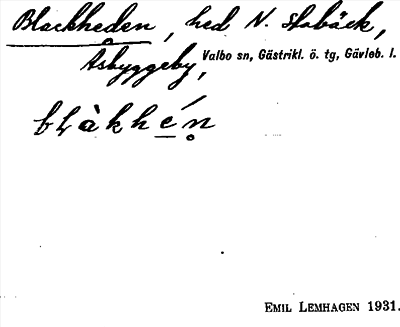 Blackheden, hed N. Stabäck,
Åsbyggeby, Valbo sn, Gästrikl. ö. tg, Gävleb. l.
bḷàkhé̠n̥
EMIL LEMHAGEN 1931.